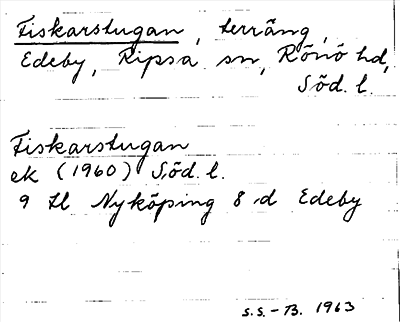 Fiskarstugan, terräng,
Edeby, Ripsa sn, Rönö hd,
Söd. l.
Fiskarstugan
ek (1960) Söd. l.
9 H Nyköping 8 d Edeby
S.S. - B. 1963